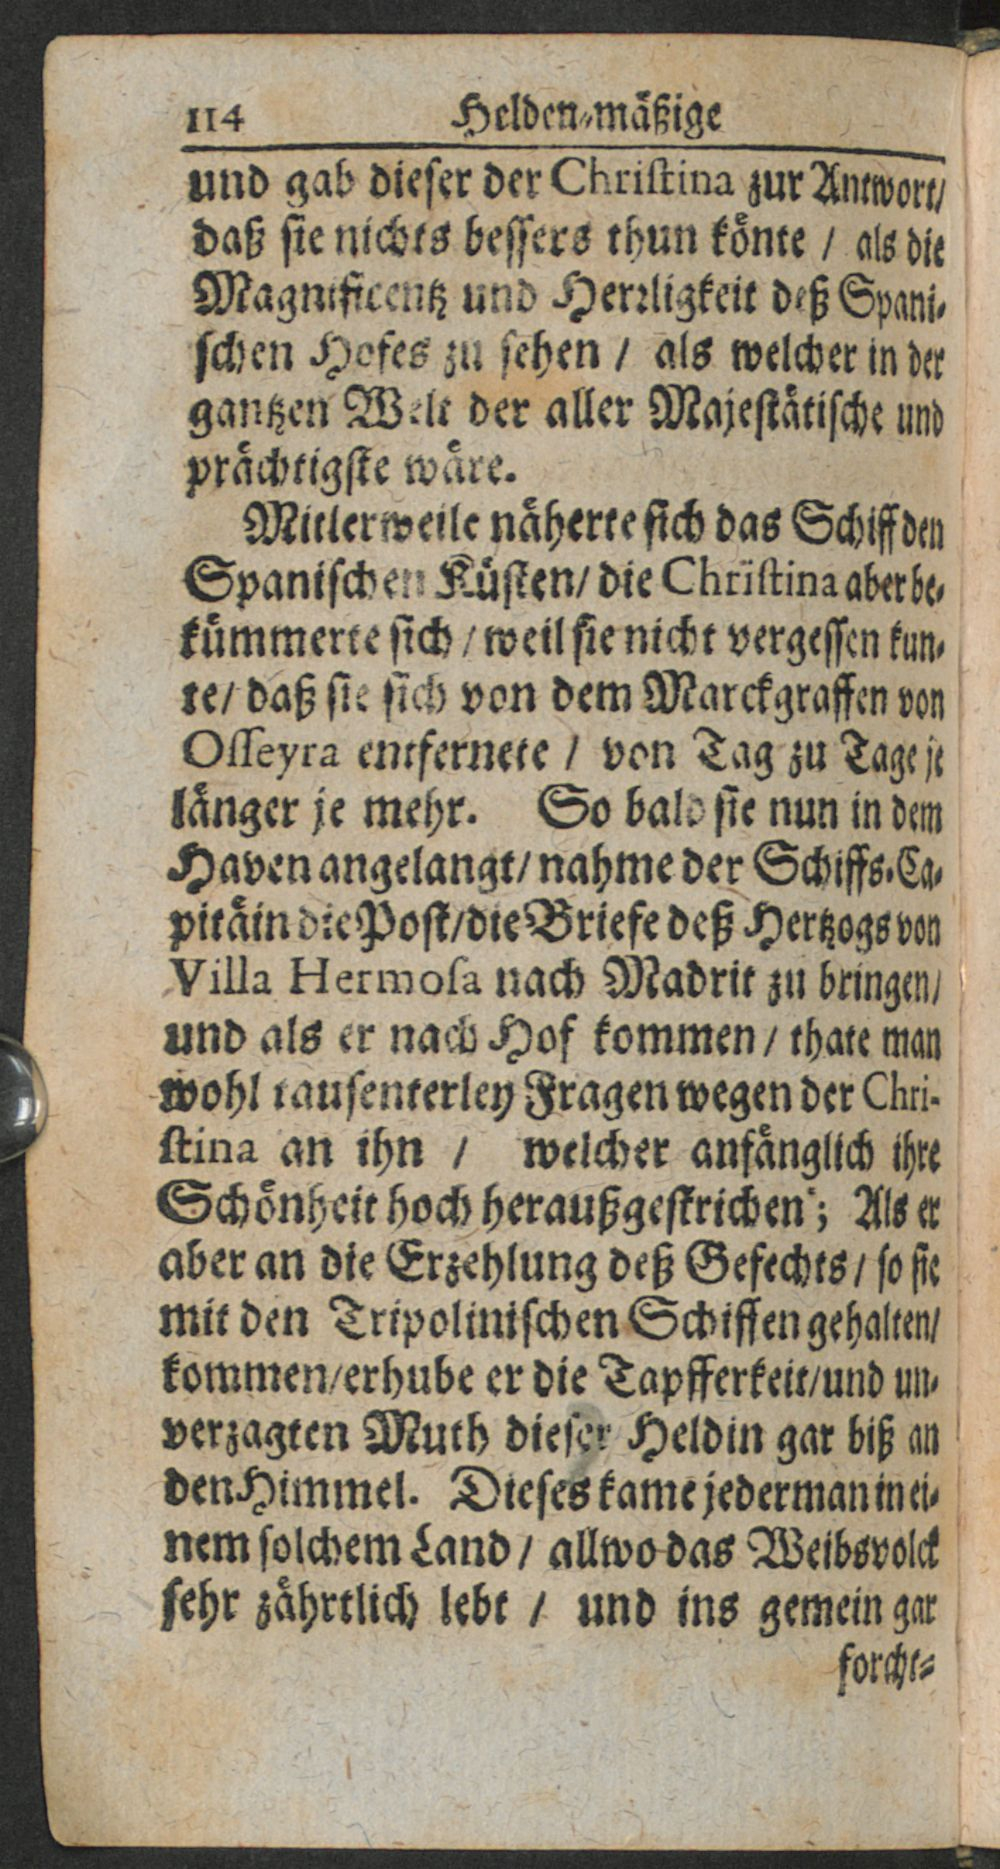 114 Helden-mäßige
und gab dieser der Christina zur Antwort/
daß sie nichts bessers thun könte / als die
Magnificentz und Herrligkeit deß Spani-
schen Hofes zu sehen / als welcher in der
gantzen Welt der aller Majestätische und
prächtigste wäre.
Mitlerweile näherte sich das Schiff den
Spanischen Küsten/ die Christina aber be-
kümmerte sich / weil sie nicht vergessen kun-
te/ daß sie sich von dem Marckgraffen von
Osseyra entfernete / von Tag zu Tage je
länger je mehr. So bald sie nun in dem
Haven angelangt/ nahme der Schiffs-Ca-
pitäin die Post/die Briefe deß Hertzogs von
Villa Hermosa nach Madrit zu bringen/
und als er nach Hof kommen / thate man
wohl tausenterley Fragen wegen der Chri-
stina an ihn / welcher anfänglich ihre
Schönheit hoch heraußgestrichen; Als er
aber an die Erzehlung deß Gefechts / so sie
mit den Tripolinischen Schiffen gehalten/
kommen/erhube er die Tapfferkeit/und un-
verzagten Muth dieser Heldin gar biß an
den Himmel. Dieses kame jederman in ei-
nem solchem Land / allwo das Weibsvolck
sehr zährtlich lebt / und ins gemein gar
forcht-